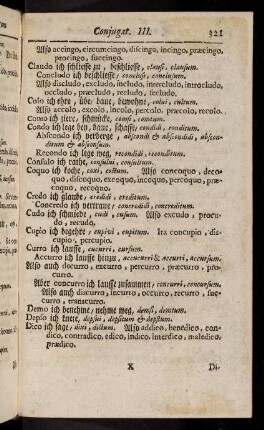 Conjugat. III. 321
Also accingo, circumcingo, discingo, incingo, præcingo,
procingo, succingo.
Claudo ich schliesse zu, beschliesse, clausi, clausum.
Concludo ich beschliesse, conclusi, conclusum.
Also discludo, excludo, includo, intercludo, introcludo,
occludo, præcludo, recludo, secludo.
Colo ich ehre, übe, baue, bewohne, colui, cultum.
Also accolo, excolo, incolo, percolo, præcolo, recolo.
Como ich ziere, schmücke, comsi, comtum.
Condo ich lege hey, baue, schaffe, condidi, conditum.
Abscondo ich verberge, abscondi & abscondidi, abscon-
ditum & absconsum.
Recondo ich lege weg, recondidi, reconditum.
Consulo ich rathe, consului, consultum.
Coquo ich koche, coxi, coctum. Also concoquo, deco-
quo, discoquo, excoquo, incoquo, percoquo, præ-
coquo, recoquo.
Credo ich glaube, credidi, creditum.
Concredo ich vertraue, concredidi, concreditum.
Cudo ich schmiede, cudi, cusum. Also excudo, procu-
do, recudo.
Cupio ich begehre, cupivi, cupitum. Ita concupio, dis-
cupio, percupio.
Curro ich lauffe, cucurri, cursum.
Accurro ich lauffe hinzu, accucurri & accurri, accursum.
Also auch decurro, excurro, percurro, præcurro, pro-
curro.
Aber concurro ich lauffe zusammen, concurri, concursum.
Also auch discurro, incurro, occurro, recurro, suc-
curro, transcurro.
Demo ich benehme, nehme weg, demsi, demtum.
Depso ich knete, depsui, depsitum & depstum.
Dico ich sage, dixi, dictum. Also addico, benedico, con-
dico, contradico, edico, indico, interdico, maledico,
prædico.
X Di-